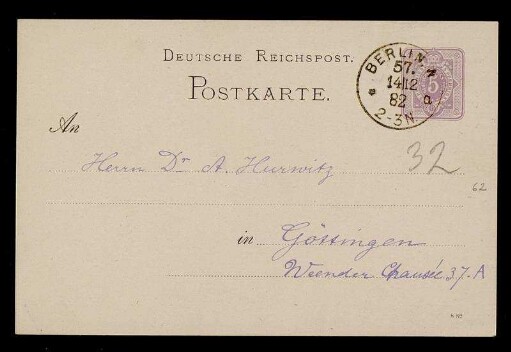 DEUTSCHE REICHSPOST.
POSTKARTE.
BERLIN, N
57.
1412
82
2-3N.
a
5
An
Herrn Dr A. Hurwitz
32
62
in Göttingen
Weender Chausée 37.A